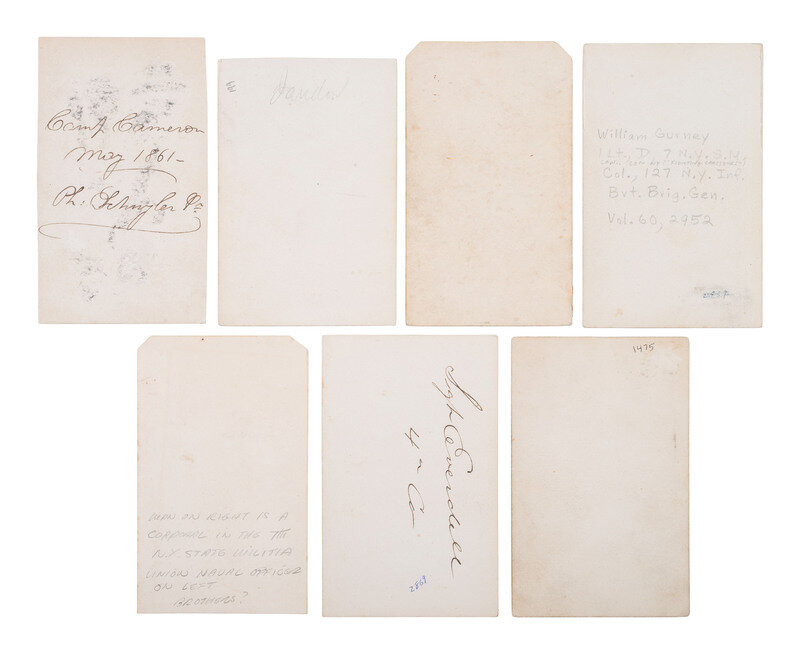 Camp Cameron
May 1861-
Ph: Schuyler
William Gurney
1 Lt., D, 7 N.Y.S.M.
Col., 127 N.Y. Inf.
Bvt. Brig. Gen.
Vol. 60, 2952
MAN ON RIGHT IS A
CORPORAL IN THE VII
N.Y. STATE MILITIA
UNION NAVAL OFFICER
ON LEFT
BROTHERS?
Coverdell
4th Co
2868
1475